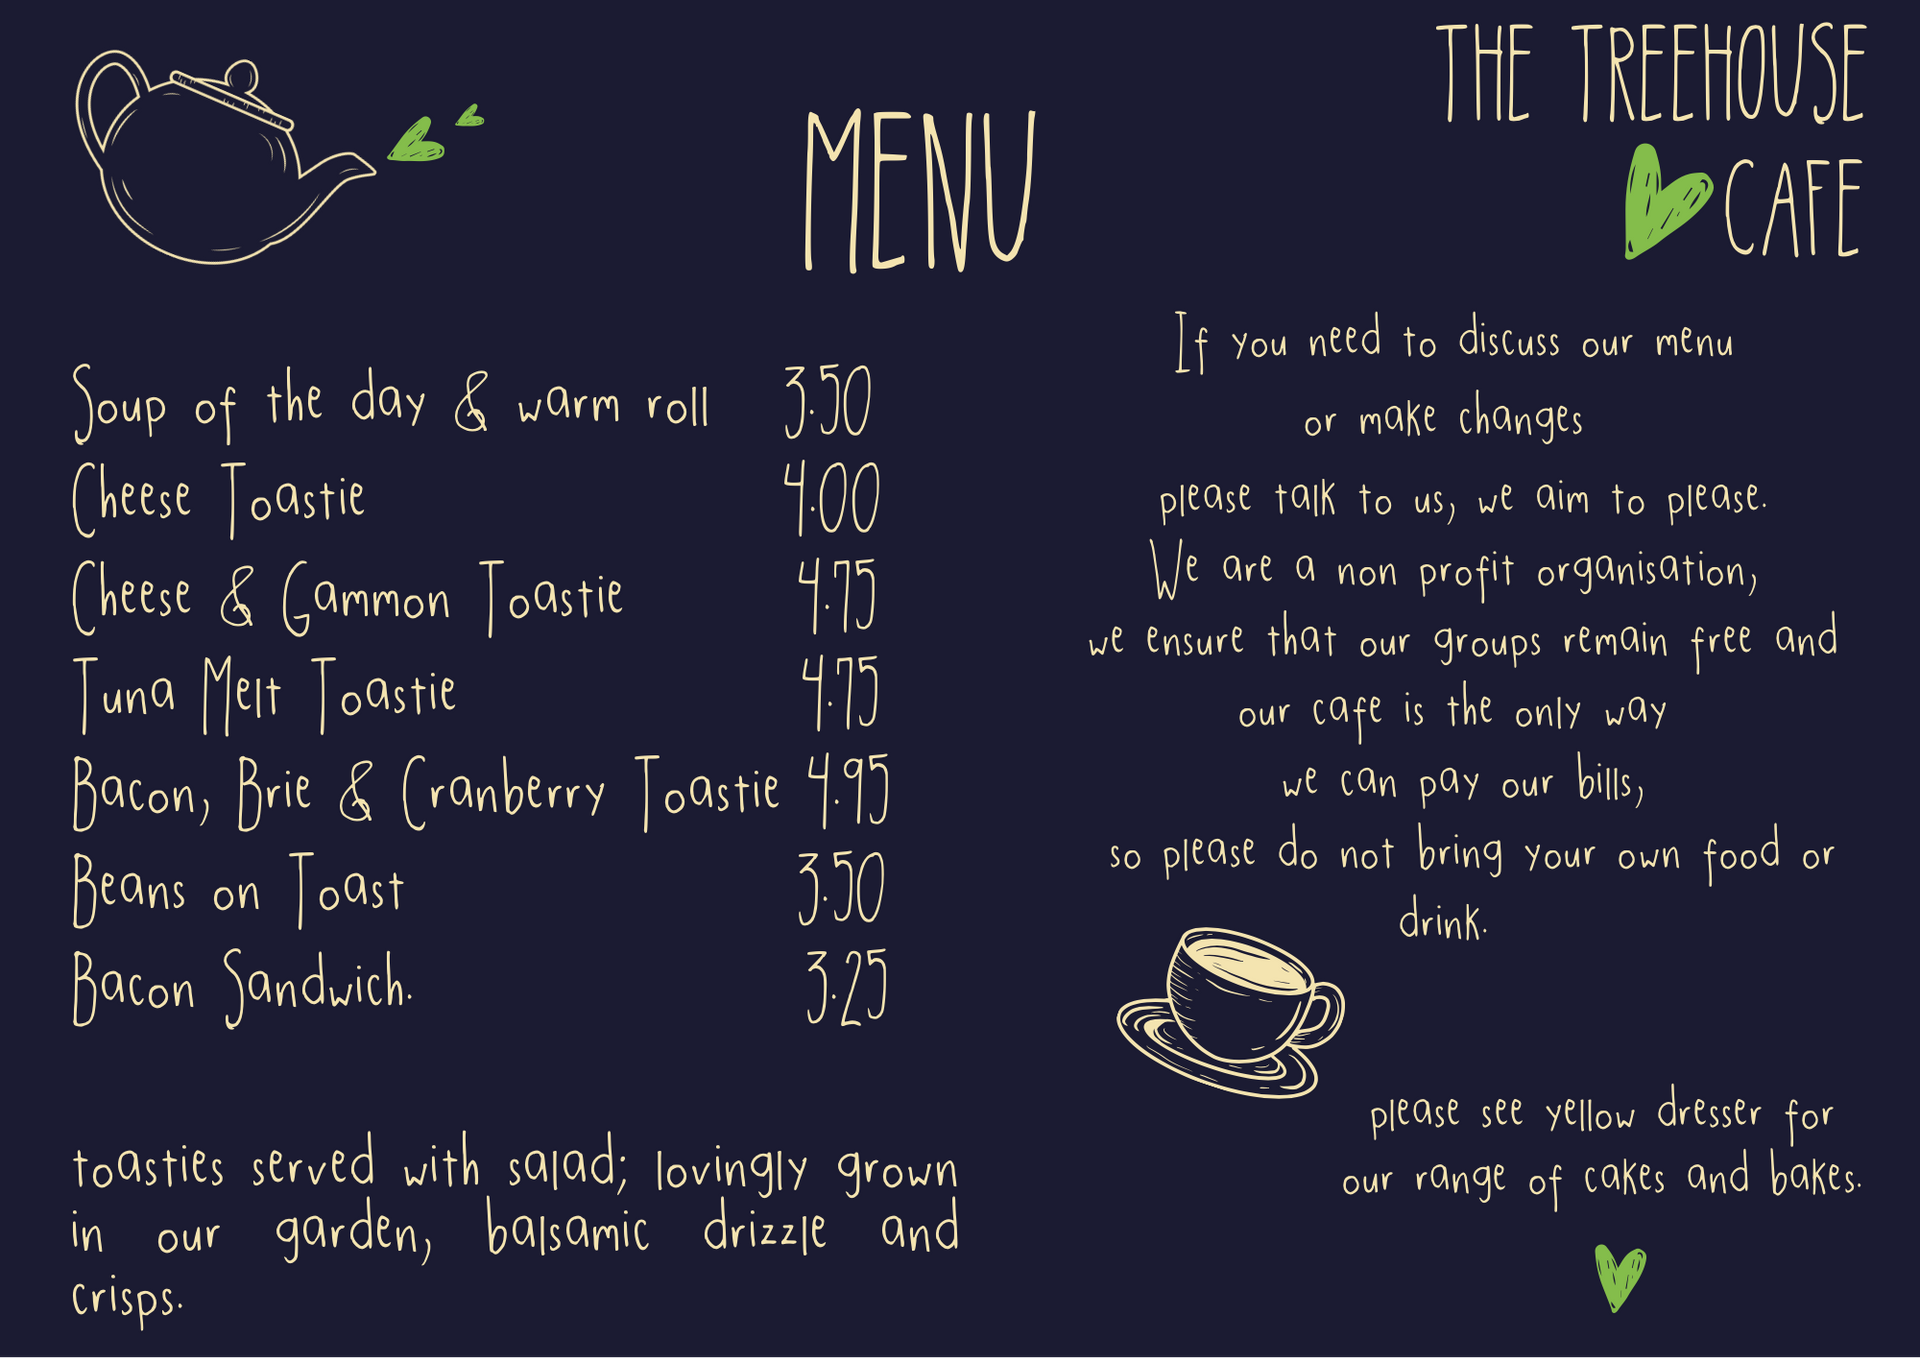 THE TREEHOUSE
CAFE
MENU
Soup of the day & warm roll 3.50
Cheese Toastie 4.00
Cheese & Gammon Toastie 4.75
Tuna Melt Toastie 4.75
Bacon, Brie & Cranberry Toastie 4.95
Beans on Toast 3.50
Bacon Sandwich. 3.25
toasties served with salad; lovingly grown
in our garden, balsamic drizzle and
crisps.
If you need to discuss our menu
or make changes
please talk to us, we aim to please.
We are a non profit organisation,
we ensure that our groups remain free and
our cafe is the only way
we can pay our bills,
so please do not bring your own food or
drink.
please see yellow dresser for
our range of cakes and bakes.